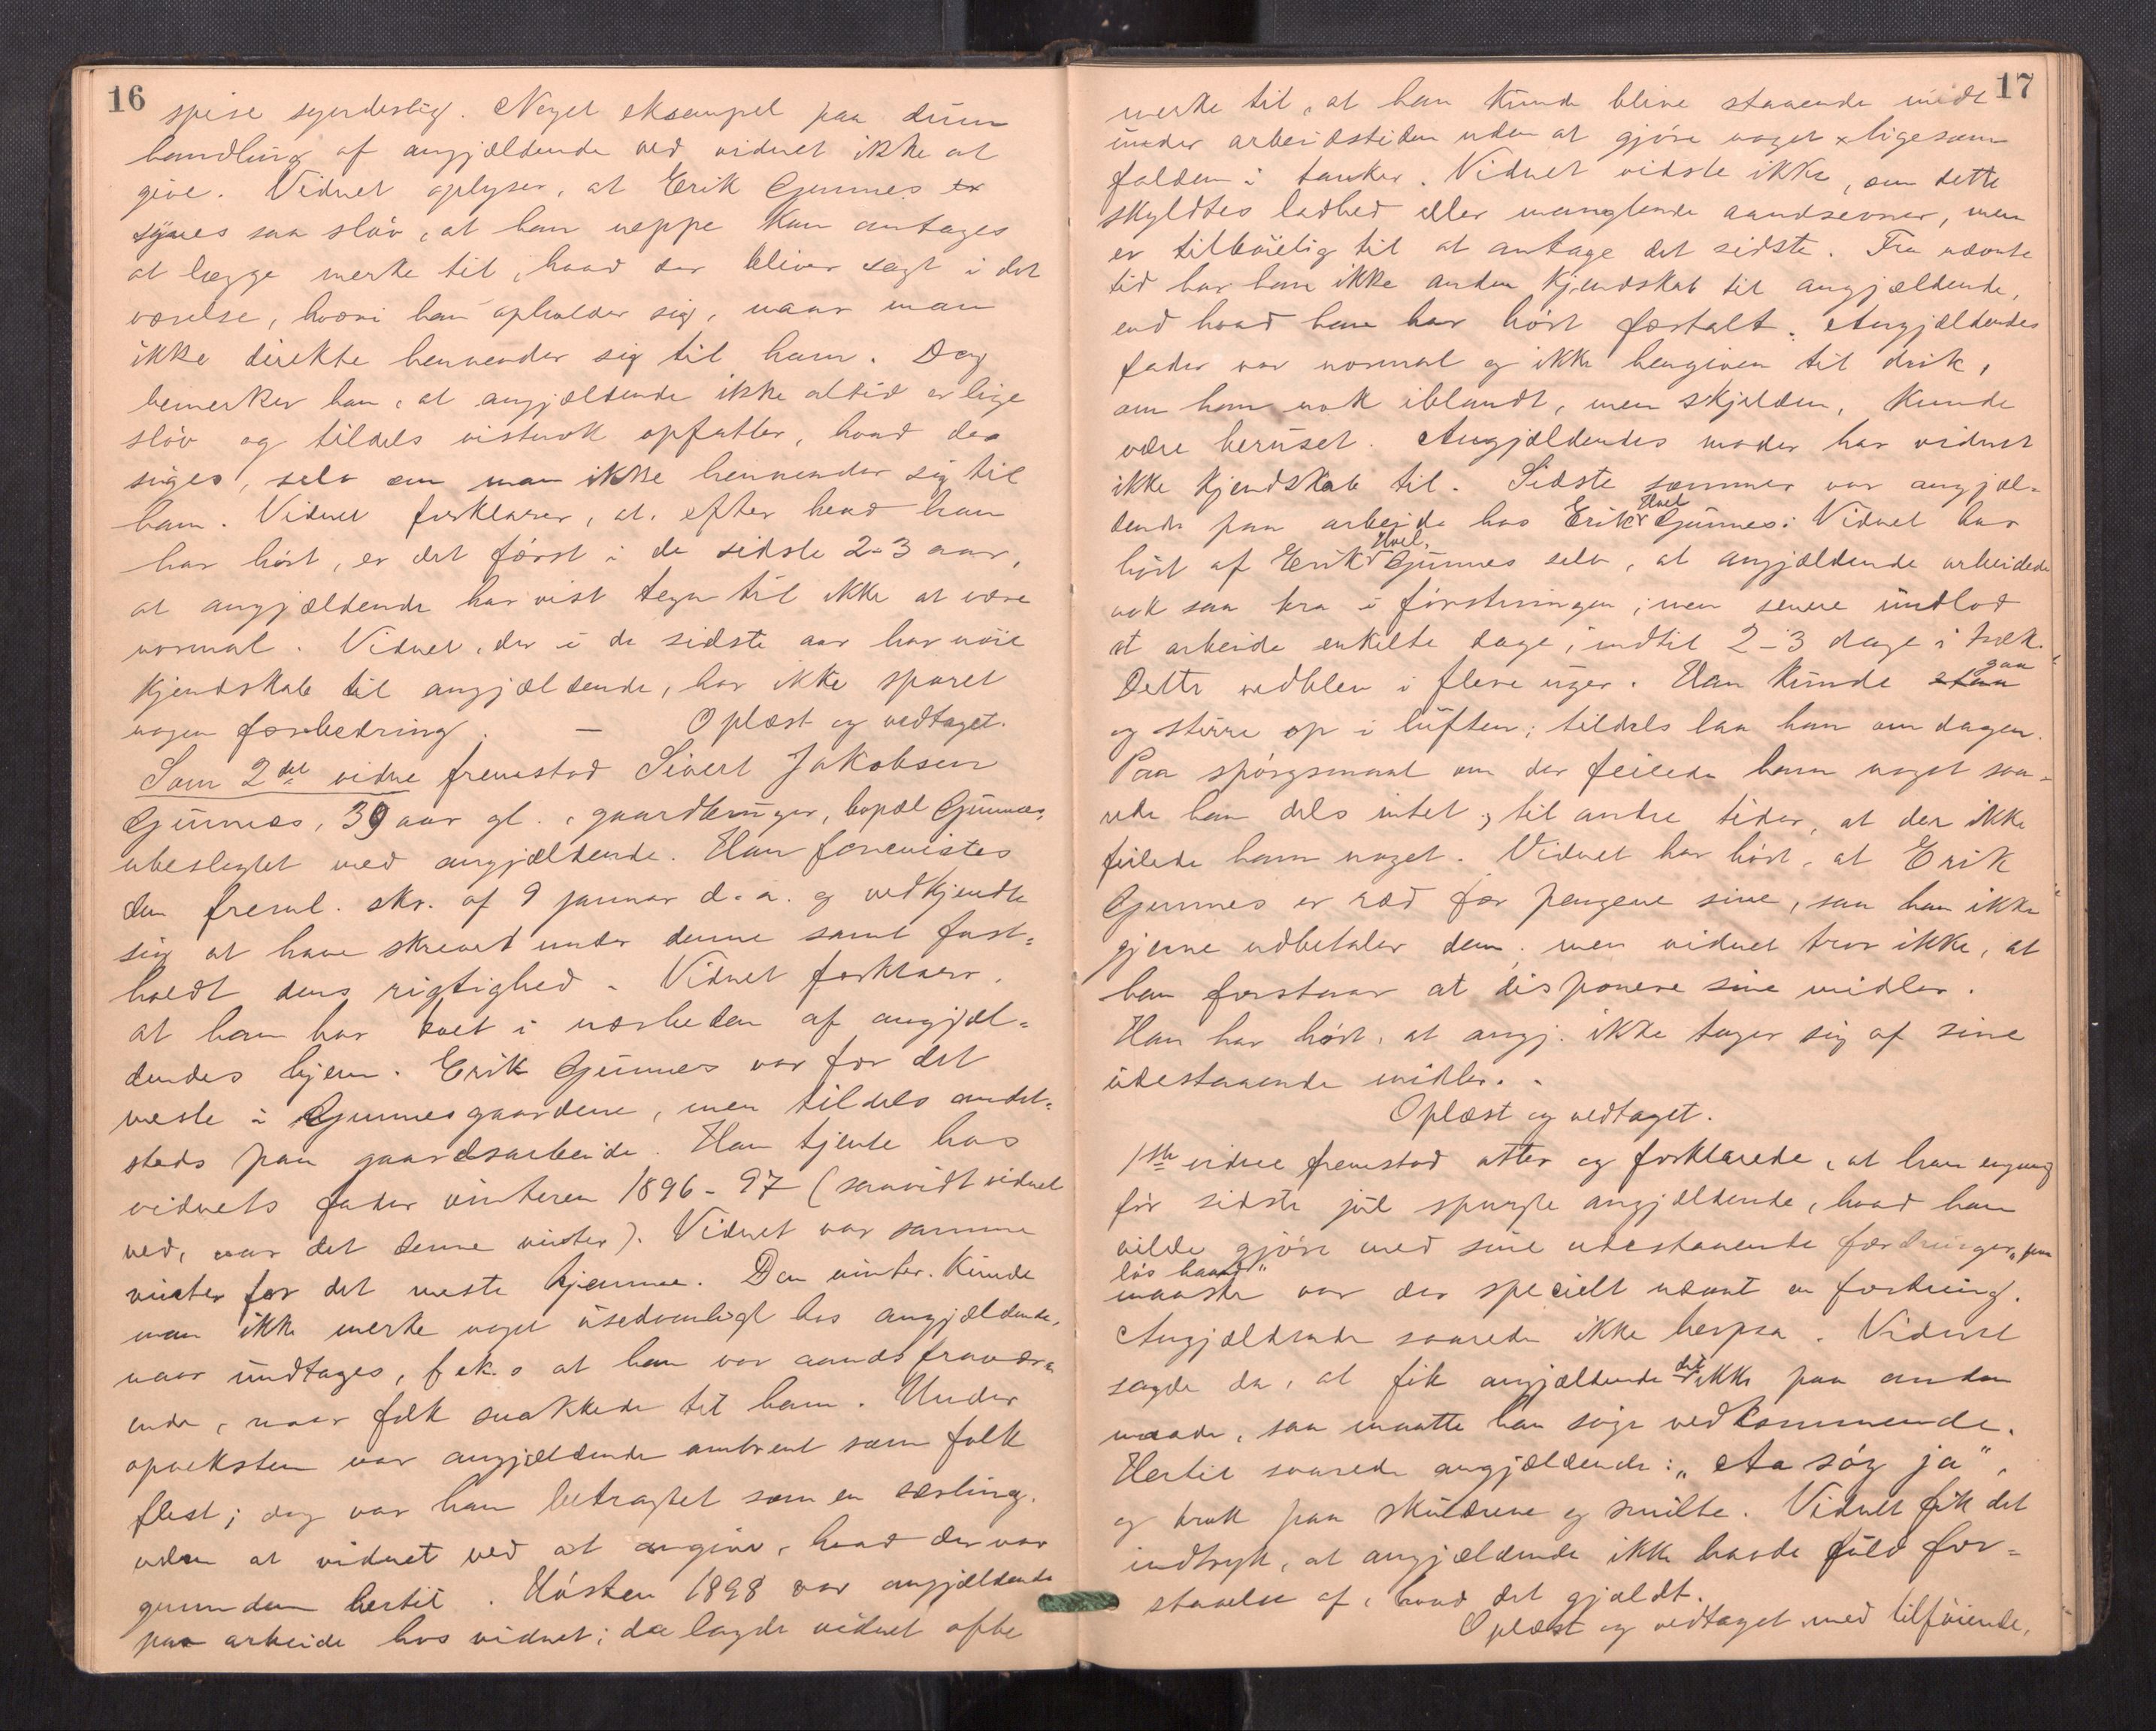 16
spise synderlig. Noget eksempel paa dum
handling af angjældende ved vidnet ikke at
give. Vidnet oplyser, at Erik Gunnes er
synes saa sløv, at han neppe kan antages
at lægge merke til, hvad der bliver sagt i det
værelse, hvori han opholder sig, naar man
ikke direkte henvender sig til ham. Dog
bemerker han, at angjældende ikke altid er lige
sløv og tildels vistnok opfatter, hvad der
siges, selv om man ikke henvender sig til
ham. Vidnet forklarer, at efter hvad han
har hørt, er det først i de sidste 2-3 aar,
at angjældende har vist tegn til ikke at være
normal. Vidnet, der i de sidste aar har nøie
kjendskab til angjældende, har ikke sporet
nogen forbedring. — Oplæst og vedtaget.
Som 2det vidne fremstod Sivert Jakobsen
Gunnes, 39 aar gl., gaardbruger, bopæl Gunnes,
ubeslegtet med angjældende. Han forevistes
den freml. skr. af 9 januar d. a. og vedkjendte
sig at have skrevet under denne samt fast-
holdt dens rigtighed. Vidnet forklarer,
at han har boet i nærheden af angjæl-
dendes hjem. Erik Gunnes var for det
meste i Gunnesgaardene, men tildels andet-
steds paa gaardsarbeide. Han tjente hos
vidnets fader vinteren 1896-97 (saavidt vidnet
ved, var det denne vinter). Vidnet var samme
vinter for det meste hjemme. Den vinter kunde
man ikke merke noget usedvanligt hos angjældende,
naar undtages, f. eks. at han var aandsfravær-
ende, naar folk snakkede til ham. Under
opveksten var angjældende omtrent som folk
flest; dog var han betragtet som en særling,
uden at vidnet ved at angive, hvad der var
grunden hertil. Høsten 1898 var angjældende
paa arbeide hos vidnet; da lagde vidnet ofte
17
merke til, at han kunde blive staaende midt
under arbeidstiden uden at gjøre noget ligesom
falden i tanker. Vidnet vidste ikke, om dette
skyldtes ladhed eller manglende aandsevner, men
er tilbøielig til at antage det sidste. Fra nævnte
tid har han ikke anden kjendskab til angjældende,
end hvad han har hørt fortalt. Angjældendes
fader var normal og ikke hengiven til drik,
om han nok iblandt, men skjelden, kunde
være beruset. Angjældendes moder har vidnet
ikke kjendskab til. Sidste sommer var angjæl-
dende paa arbeide hos Erik Gunnes. Vidnet har
hørt af Erik Gunnes selv, at angjældende arbeidede
nok saa bra i førstningen, men senere undlod
at arbeide enkelte dage, indtil 2-3 dage i træk.
Dette vedblev i flere uger. Han kunde staa gaa
og stirre op i luften; tildels laa han om dagen.
Paa spørgsmaal om der feilede ham noget sva-
rede han dels intet, til andre tider, at der ikke
feilede ham noget. Vidnet har hørt, at Erik
Gunnes er ræd for pengene sine, saa han ikke
gjerne udbetaler dem, men vidnet tror ikke, at
han forstaar at disponere sine midler.
Han har hørt, at angj. ikke tager sig af sine
udestaaende midler.
Oplæst og vedtaget.
1ste vidne fremstod atter og forklarede, at han engang
før sidste jul spurgte angjældende, hvad han
vilde gjøre med sine udestaaende fordringer, "paa
løs haand"
maaske var der specielt nævnt en fordring.
Angjældende svarede ikke herpaa. Vidnet
sagde da, at fik angjældende det ikke paa anden
maade, saa maatte han søge vedkommende.
Hertil svarede angjældende: "Aa søg ja",
og trak paa skuldrene og smilte. Vidnet fik det
indtryk, at angjældende ikke havde fuld for-
staaelse af, hvad det gjældt.
Oplæst og vedtaget med tilføiende,